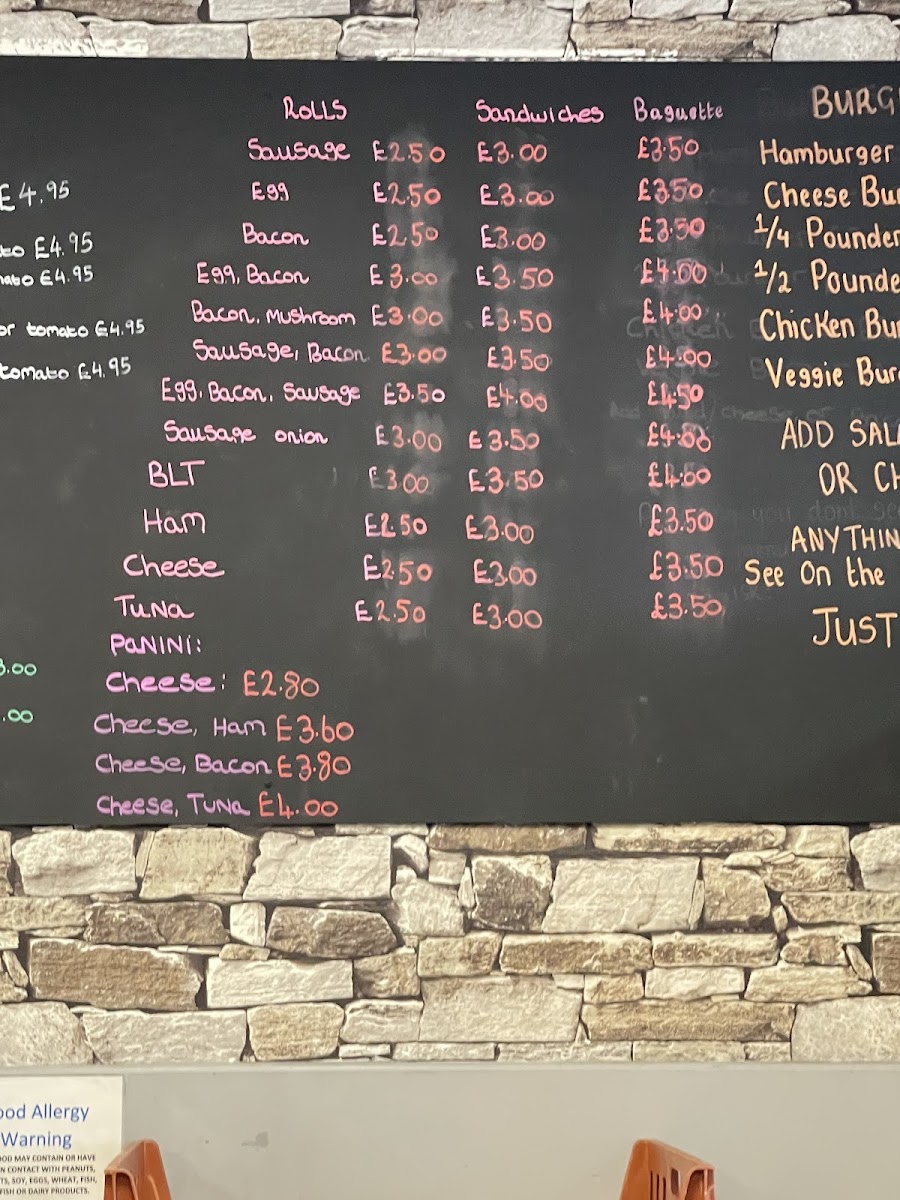 ROLLS Sandwiches Baguette
Sausage £2.50 £3.00 £3.50
Egg £2.50 £3.00 £3.50
Bacon £2.50 £3.00 £3.50
Egg, Bacon £3.00 £3.50 £4.00
Bacon, Mushroom £3.00 £3.50 £4.00
Sausage, Bacon £3.00 £3.50 £4.00
Egg, Bacon, Sausage £3.50 £4.00 £4.50
Sausage onion £3.00 £3.50 £4.00
BLT £3.00 £3.50 £4.00
Ham £2.50 £3.00 £3.50
Cheese £2.50 £3.00 £3.50
TUNA £2.50 £3.00 £3.50
PANINI:
Cheese: £2.80
Cheese, Ham £3.60
Cheese, Bacon £3.80
Cheese, TUNA £4.00
£4.95
£4.95
£4.95
or tomato £4.95
tomato £4.95
3.00
.00
BURG
Hamburger
Cheese Bur
1/4 Pounder
1/2 Pounde
Chicken Bur
Veggie Bur
ADD SAL
OR CH
ANYTHIN
See On the
JUST
ood Allergy
Warning
OOD MAY CONTAIN OR HAVE
N CONTACT WITH PEANUTS,
TS, SOY, EGGS, WHEAT, FISH,
FISH OR DAIRY PRODUCTS.